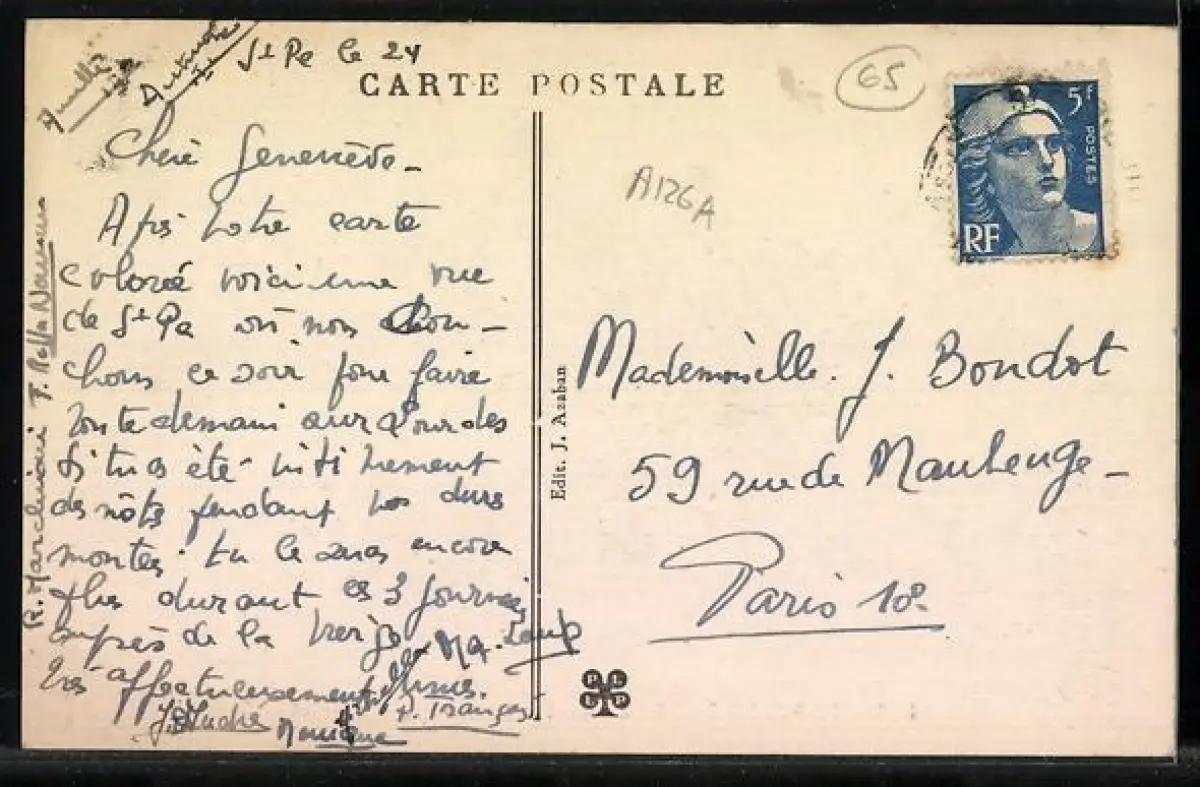 St Pe le 24
CARTE POSTALE
65
5F
POSTES
RF
A126A
Chère Geneviève -
Après votre carte
colorée voici une vue
de St Pe où nous cou-
chons ce soir pour faire
route demain sur Lourdes
Si tu as été intimement
des nôtres pendant nos dures
montées. tu le seras encore
plus durant ces 3 journées
auprès de la Vierge
très affectueusement
Monique
F. François
R. Marchioni
Edit. J. Azaban
Mademoiselle. J. Bondot
59 rue de Maubeuge -
Paris 10e